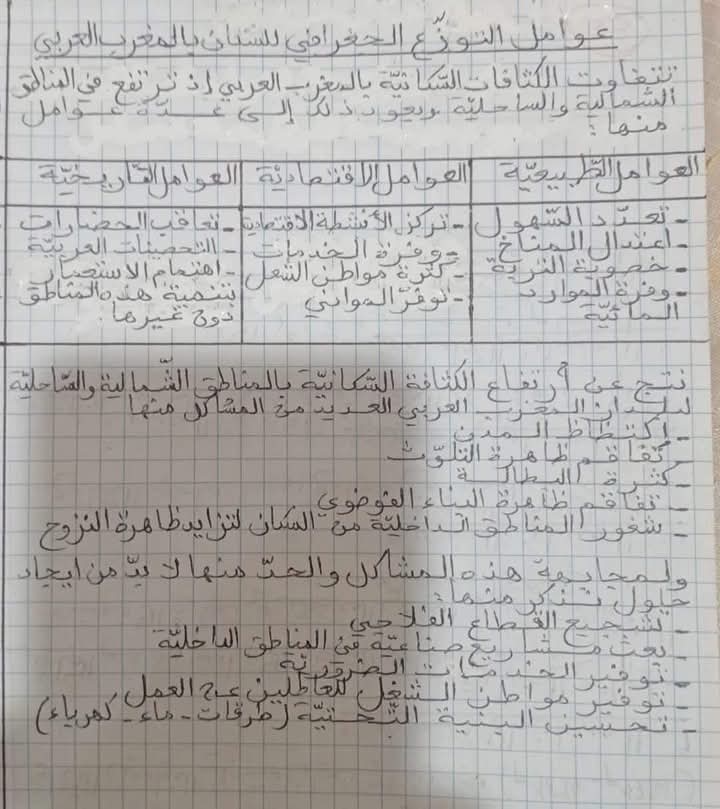 عوامل التوزّع الجغرافي للسكان بالمغرب العربي
تتفاوت الكثافات السّكانيّة بالمغرب العربي إذ ترتفع في المناطق
الشمالية والساحليّة ويعود ذلك إلى عدّة عوامل
منها:
العوامل الطّبيعيّة
- تعدّد السّهول
- اعتدال المناخ
- خصوبة التربة
- وفرة الموارد
المائيّة
العوامل الاقتصاديّة
- تركز الأنشطة الاقتصادية
- وفرة الخدمات
- كثرة مواطن الشغل
- توفّر الموانئ
العوامل التّاريخيّة
- تعاقب الحضارات
- التحصينات العربيّة
- اهتمام الاستعمار
بتنمية هذه المناطق
دون غيرها.
نتج عن ارتفاع الكثافة السّكانيّة بالمناطق الشّمالية والسّاحليّة
لبلدان المغرب العربي العديد من المشاكل منها
- اكتظاظ المدن
- تفاقم ظاهرة التلوّث
- كثرة البطالة
- تفاقم ظاهرة البناء الفوضوي
- شغور المناطق الداخليّة من السكان لتزايد ظاهرة النزوح
ولمجابهة هذه المشاكل والحدّ منها لا بدّ من ايجاد
حلول نذكر منها:
- تشجيع القطاع الفلاحي
- بعث مشاريع صناعيّة في المناطق الداخليّة
- توفير الخدمات الضروريّة
- توفير مواطن الشغل للعاطلين عن العمل
- تحسين البنية التّحتيّة (طرقات - ماء - كهرباء)